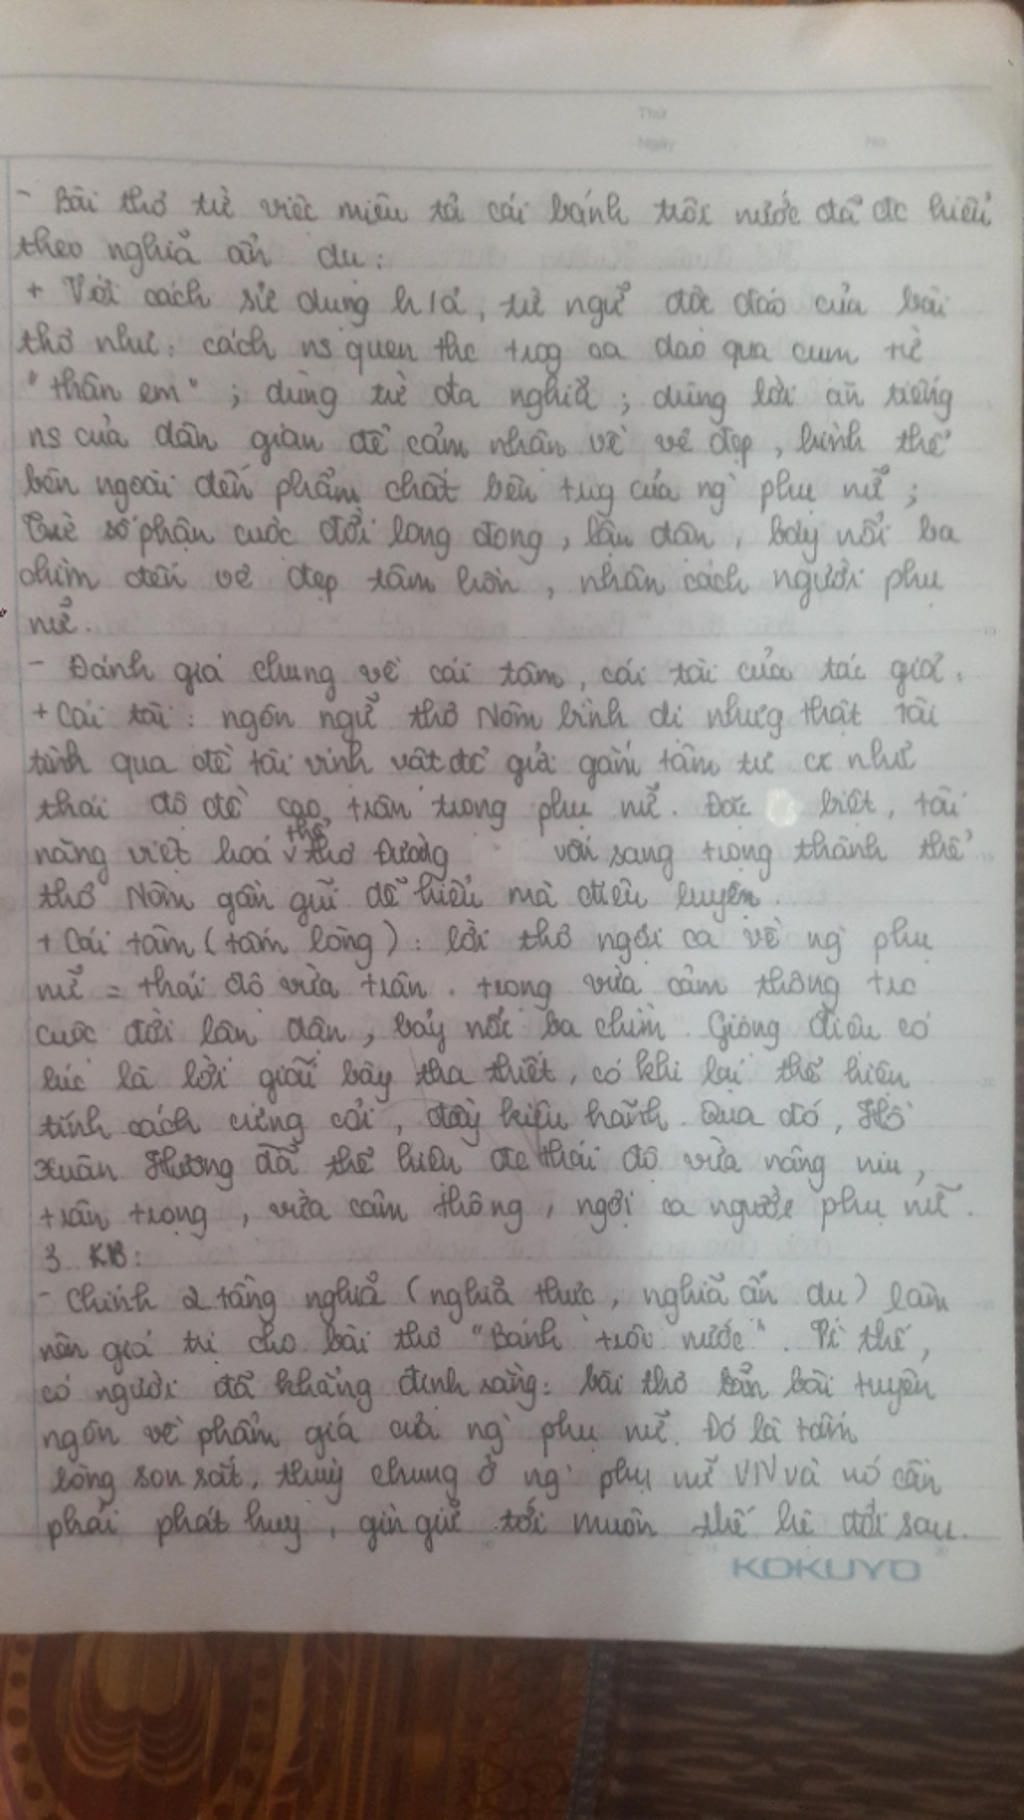 Thứ
Ngày No
- Bài thơ từ việc miêu tả cái bánh trôi nước đã đc hiểu
theo nghĩa ẩn dụ:
+ Với cách sử dụng h/ả, từ ngữ độc đáo của bài
thơ như: cách ns quen thc trog ca dao qua cụm từ
"thân em" ; dùng từ đa nghĩa ; dùng lời ăn tiếng
ns của dân gian để cảm nhận về vẻ đẹp, hình thể
bên ngoài đến phẩm chất bên trng của ng` phụ nữ ;
Từ số phận cuộc đời long đong, lận đận, bảy nổi ba
chìm đến vẻ đẹp tâm hồn, nhân cách người phụ
nữ.
- Đánh giá chung về cái tâm, cái tài của tác giả.
+ Cái tài: ngôn ngữ thơ Nôm bình dị nhưg thật tài
tình qua đề tài vịnh vật để gửi gắm tâm tư cx như
thái độ đề cao, trân trọng phụ nữ. Đặc biệt, tài
thể
năng việt hoá √ thơ Đường vốn sang trọng thành thể
thơ Nôm gần gũi dễ hiểu mà điêu luyện.
+ Cái tâm (tấm lòng): lời thơ ngợi ca về ng` phụ
nữ = thái độ vừa trân . trọng vừa cảm thông trc
cuộc đời lận đận, bảy nổi ba chìm. Giọng điệu có
lúc là lời giãi bày tha thiết, có khi lại thể hiện
tính cách cứng cỏi, đầy kiêu hãnh. Qua đó, Hồ
Xuân Hương đã thể hiện đc thái độ vừa nâng niu,
trân trọng, vừa cảm thông, ngợi ca người phụ nữ.
3. KB:
- Chính 2 tầng nghĩa (nghĩa thực, nghĩa ẩn dụ) làm
nên giá trị cho bài thơ "Bánh trôi nước". Vì thế,
có người đã khẳng định rằng: bài thơ bản bài tuyên
ngôn về phẩm giá của ng` phụ nữ. Đó là tấm
lòng son sắt, thuỷ chung ở ng` phụ nữ VN và nó cần
phải phát huy, gìn giữ tới muôn thế hệ đời sau.
KOKUYO